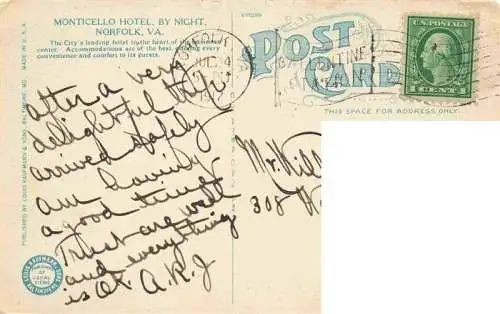 MONTICELLO HOTEL, BY NIGHT,
NORFOLK, VA.
The City's leading hotel in the heart of the
center. Accommodations are of the best, offering every
convenience and comfort to its guests.
MADE IN U. S. A.
PUBLISHED BY LOUIS KAUFMANN & SONS, BALTIMORE, MD.
POST
CARD
THIS SPACE FOR ADDRESS ONLY.
U.S. POSTAGE
1 CENT 1
after a very
delightful trip
arrived safely
am having
a good time.
Trust are well
and everything
is O.K. A.R.J
Mr. Will
308
OF
LOCAL VIEWS